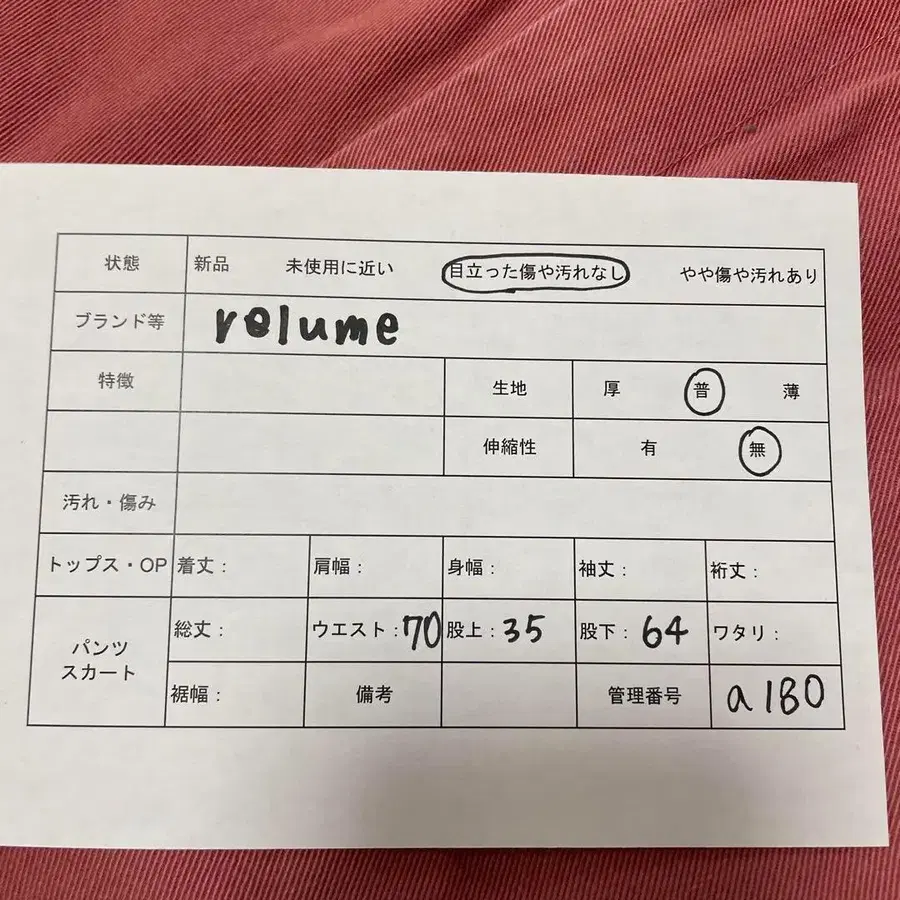 状態 新品 未使用に近い 目立った傷や汚れなし やや傷や汚れあり
ブランド等 relume
特徴 生地 厚 普 薄
伸縮性 有 無
汚れ・傷み
トップス・OP 着丈： 肩幅： 身幅： 袖丈： 裄丈：
パンツ
スカート
総丈： ウエスト：70 股上：35 股下：64 ワタリ：
裾幅： 備考 管理番号 a180